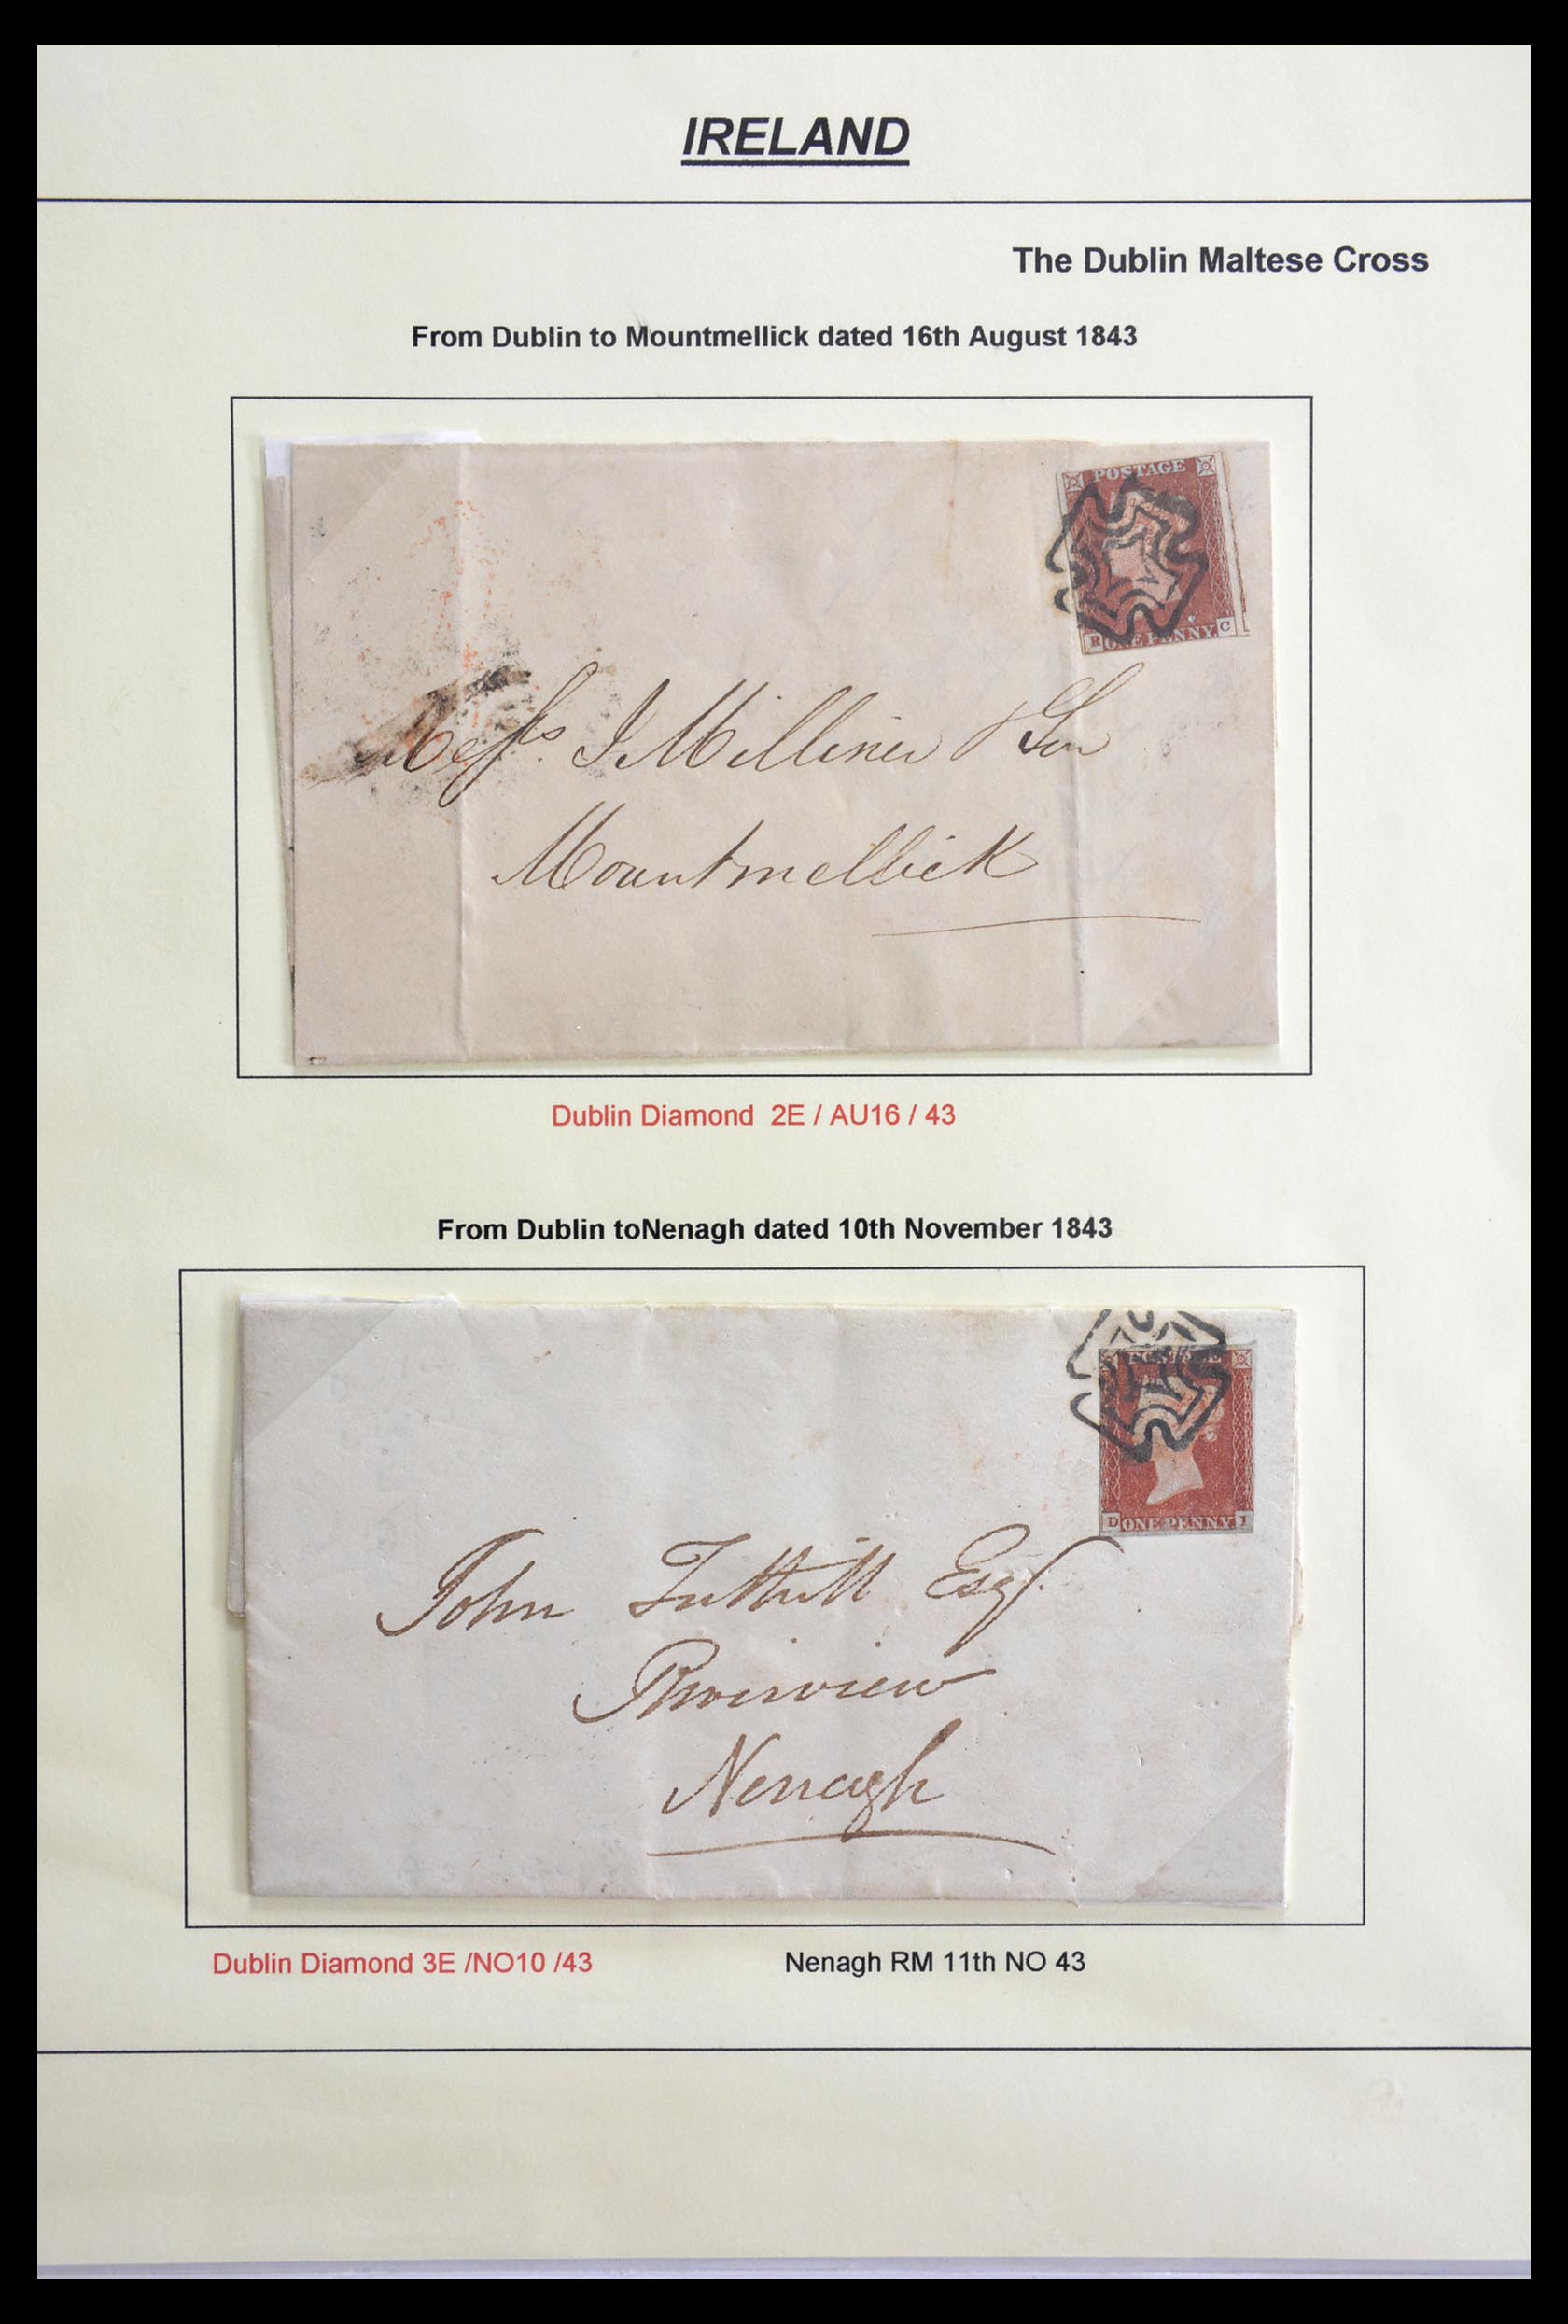 IRELAND
The Dublin Maltese Cross
From Dublin to Mountmellick dated 16th August 1843
POSTAGE
R ONE PENNY C
Messrs. J Milliner & Son
Mountmellick
Dublin Diamond 2E / AU16 / 43
From Dublin toNenagh dated 10th November 1843
POSTAGE
D ONE PENNY I
John Tuthill Esqr.
Riverview
Nenagh
Dublin Diamond 3E /NO10 /43
Nenagh RM 11th NO 43